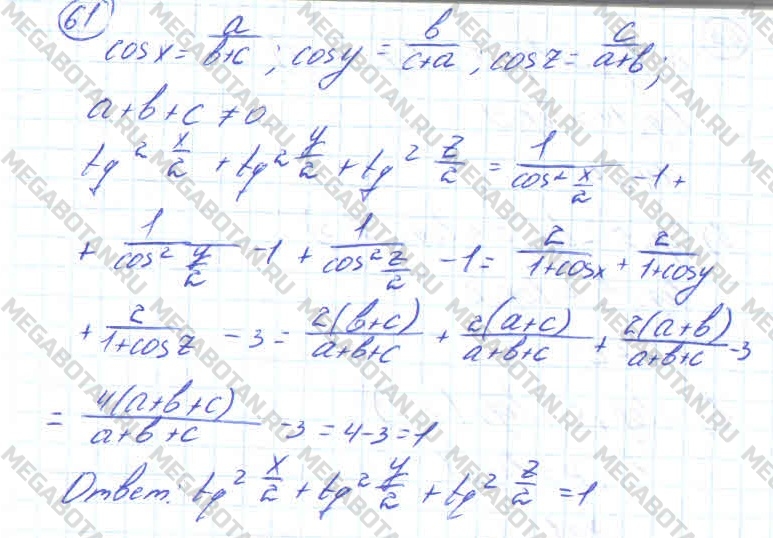 61
cos x = a/(b+c); cos y = b/(c+a); cos z = c/(a+b);
a+b+c ≠ 0
tg² x/2 + tg² y/2 + tg² z/2 = 1/(cos² x/2) - 1 +
+ 1/(cos² y/2) - 1 + 1/(cos² z/2) - 1 = 2/(1+cos x) + 2/(1+cos y)
+ 2/(1+cos z) - 3 = 2(b+c)/(a+b+c) + 2(a+c)/(a+b+c) + 2(a+b)/(a+b+c) - 3
= 4(a+b+c)/(a+b+c) - 3 = 4 - 3 = 1
Ответ: tg² x/2 + tg² y/2 + tg² z/2 = 1
MEGABOTAN.RU